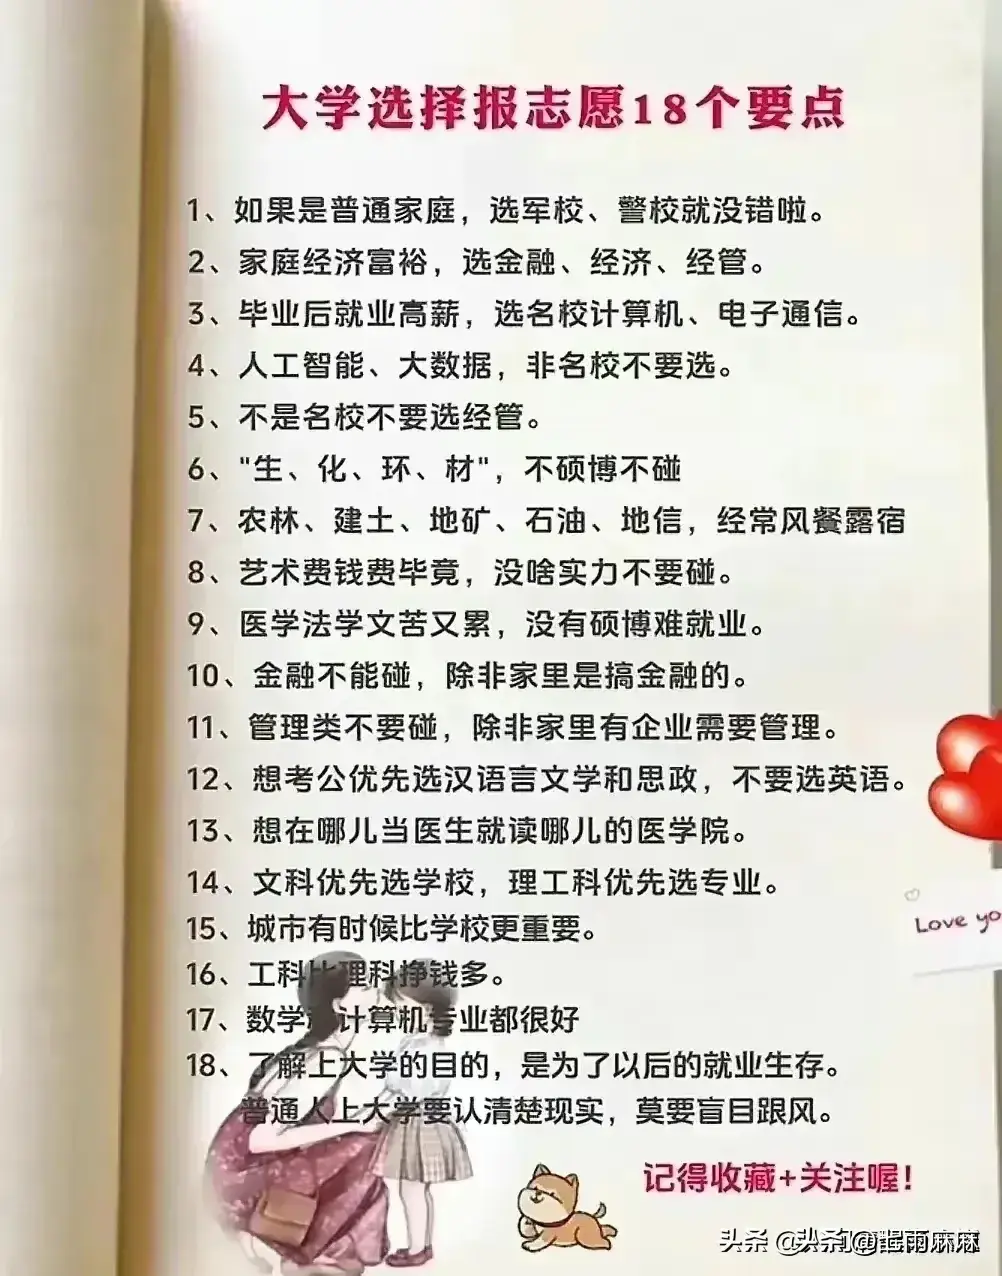 大学选择报志愿18个要点
1、如果是普通家庭，选军校、警校就没错啦。
2、家庭经济富裕，选金融、经济、经管。
3、毕业后就业高薪，选名校计算机、电子通信。
4、人工智能、大数据，非名校不要选。
5、不是名校不要选经管。
6、"生、化、环、材"，不硕博不碰
7、农林、建土、地矿、石油、地信，经常风餐露宿
8、艺术费钱费毕竟，没啥实力不要碰。
9、医学法学文苦又累，没有硕博难就业。
10、金融不能碰，除非家里是搞金融的。
11、管理类不要碰，除非家里有企业需要管理。
12、想考公优先选汉语言文学和思政，不要选英语。
13、想在哪儿当医生就读哪儿的医学院。
14、文科优先选学校，理工科优先选专业。
15、城市有时候比学校更重要。
16、工科比理科挣钱多。
17、数学和计算机专业都很好
18、了解上大学的目的，是为了以后的就业生存。
普通人上大学要认清楚现实，莫要盲目跟风。
Love yo
记得收藏+关注喔！
头条 @头条@雨麻麻